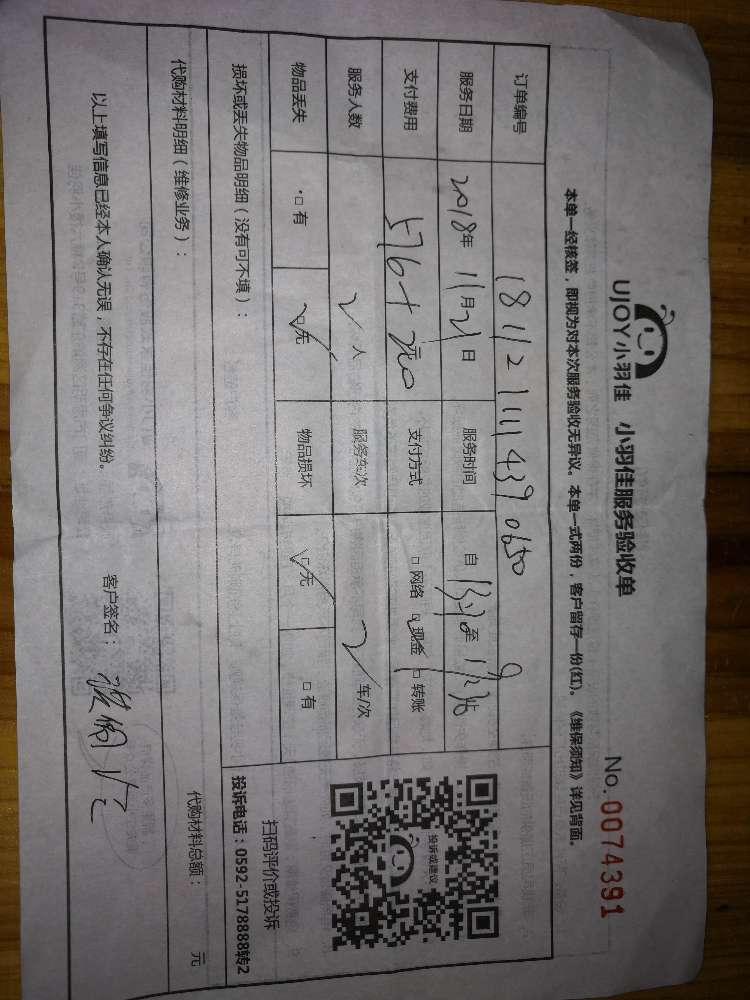 UJOY小羽佳 小羽佳服务验收单
No.0074391
本单一经核签，即视为对本次服务验收无异议。本单一式两份，客户留存一份(红)。《维保须知》详见背面。
订单编号 1811211114390650
服务日期 2018年11月21日 服务时间 自 至
支付费用 576+ 元 支付方式 □网络 □现金 □转账
服务人数 2人 服务车次 2车/次
物品丢失 □有 □无 物品损坏 □无 □有
损坏或丢失物品明细（没有可不填）：
投诉或建议
扫码评价或投诉
投诉电话：0592-5178888转2
代购材料明细（维修业务）： 代购材料总额： 元
以上填写信息已经本人确认无误，不存在任何争议纠纷。 客户签名：